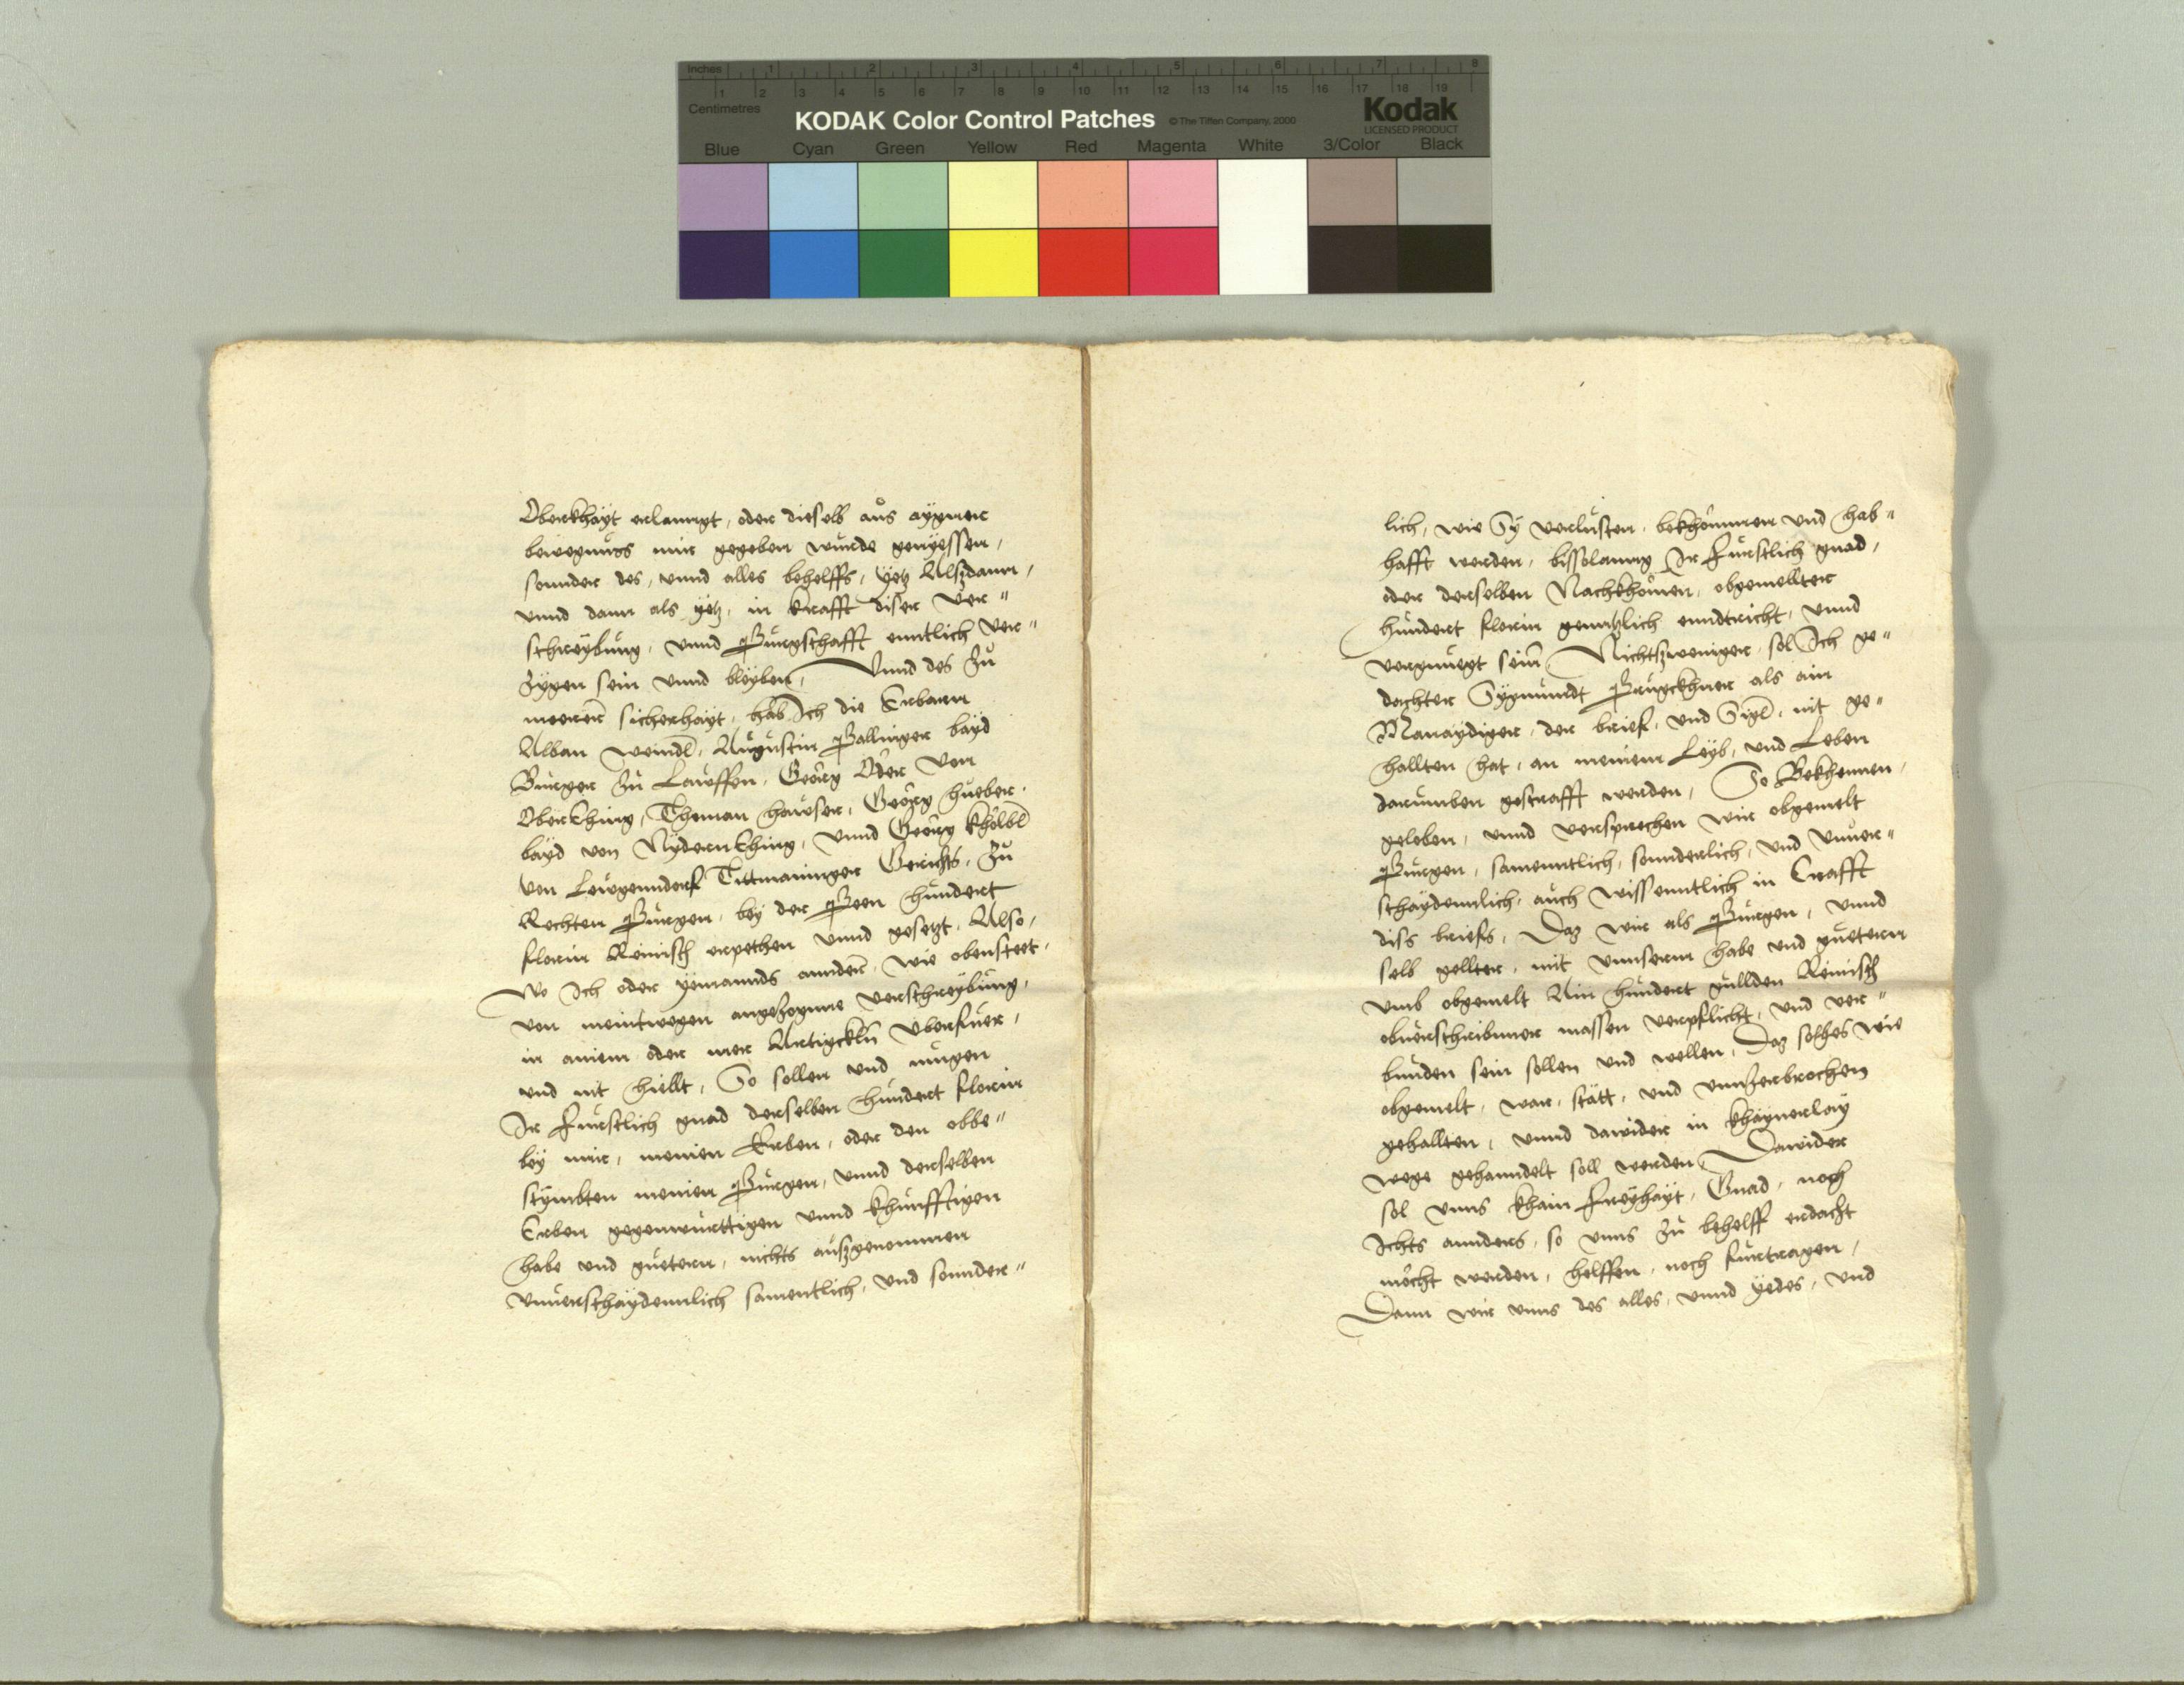 inches 1 2 3 4 5 6 7 8
1 2 3 4 5 6 7 8 9 10 11 12 13 14 15 16 17 18 19
Centimetres
KODAK Color Control Patches © The Tiffen Company, 2000 Kodak
LICENSED PRODUCT
Blue Cyan Green Yellow Red Magenta White 3/Color Black
Oberkhayt erlanngt, oder dieselb aus aygner
bewegnuss mir gegeben wurde geniessen,
sonnder des, vnnd alles behelffs, yetz Alsdann,
vnnd dann als yetz, in krafft diser Ver"
schreybung, vnnd Purgschafft enntlich ver"
zygen sein vnnd bleyben, Vnnd des zu
meerer sicherhayt, hab Ich die Erbarn
Alban Weindl, Augustin Pallinger bayd
Burger zu Lauffen, Georg Öder von
Oberkhing, Thoman hauser, Georg Hueber,
bayd von Nydernkhing, vnnd Georg Khölbl
von Leugenndorf Tittmaninger Gerichts, zu
Rechten Purgen, bey der Peen hundert
florin Reinisch erpethen vnnd gesetzt, Also,
Wo Ich oder yemannds annder, wie obensteet,
von meintwegen angezogne verschreybung,
in ainem oder mer Artigckln vberfuer,
vnd nit hiellt, So sollen vnd mugen
Ir Furstlich gnad derselben hundert florin
bey mir, meinen Erben, oder den obbe"
stymbten meinen Purgen, vnnd derselben
Erben gegenwurttigen vnnd khunfftigen
habe vnd guetern, nichts ausgenommen
vnuerschaydennlich samentlich, vnd sonnder"
lich, wie Sy verlusten, bekhömmen vnd hab"
hafft werden, bisslanng Ir Furstlich gnad,
oder derselben Nachkhomen, obgemellter
hundert florin genntzlich enndtricht, vnnd
vergnuegt sein, Nichtsweniger sol Ich ge"
dachter Sygmundt Prugckhner als ain
Manaydiger, der brief, vnd Sigl, nit ge"
hallten hat, an meinem Leyb, vnd Leben
darumben gestrafft werden, So Bekhennen,
geloben, vnnd versprechen wir obgemelt
Purgen, samenntlich, sonnderlich, vnd vnuer"
schaydennlich, auch wissenntlich in Crafft
diss briefs, Daz wir als Purgen, vnnd
selb gellter, mit vnnserm habe vnd guetern
vmb obgemelt Ain hundert gullden Reinisch
obuerschribner massen verpflicht, vnd ver"
bunden sein sollen vnd wellen, Daz solhes wie
obgemelt, war, stätt, vnd vnnzerbrochen
gehallten, vnnd dawider in khaynerlay
wege gehanndelt soll werden, Dawider
sol vnns khain Freyhayt, Gnad, noch
Ichts annders, so vnns zu behelff erdacht
möcht werden, helffen, noch furtragen,
Dann wir vnns des alles, vnnd yedes, vnd